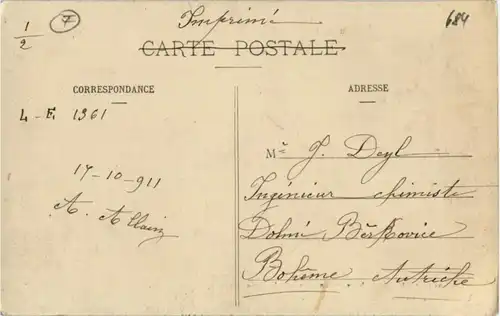 1/2
7
Imprimé
684
CARTE POSTALE
CORRESPONDANCE
ADRESSE
L-E 1361
17-10-911
A. Allain
M^r J. Deyl
Ingénieur chimiste
Dolní Běřkovice
Bohême Autriche